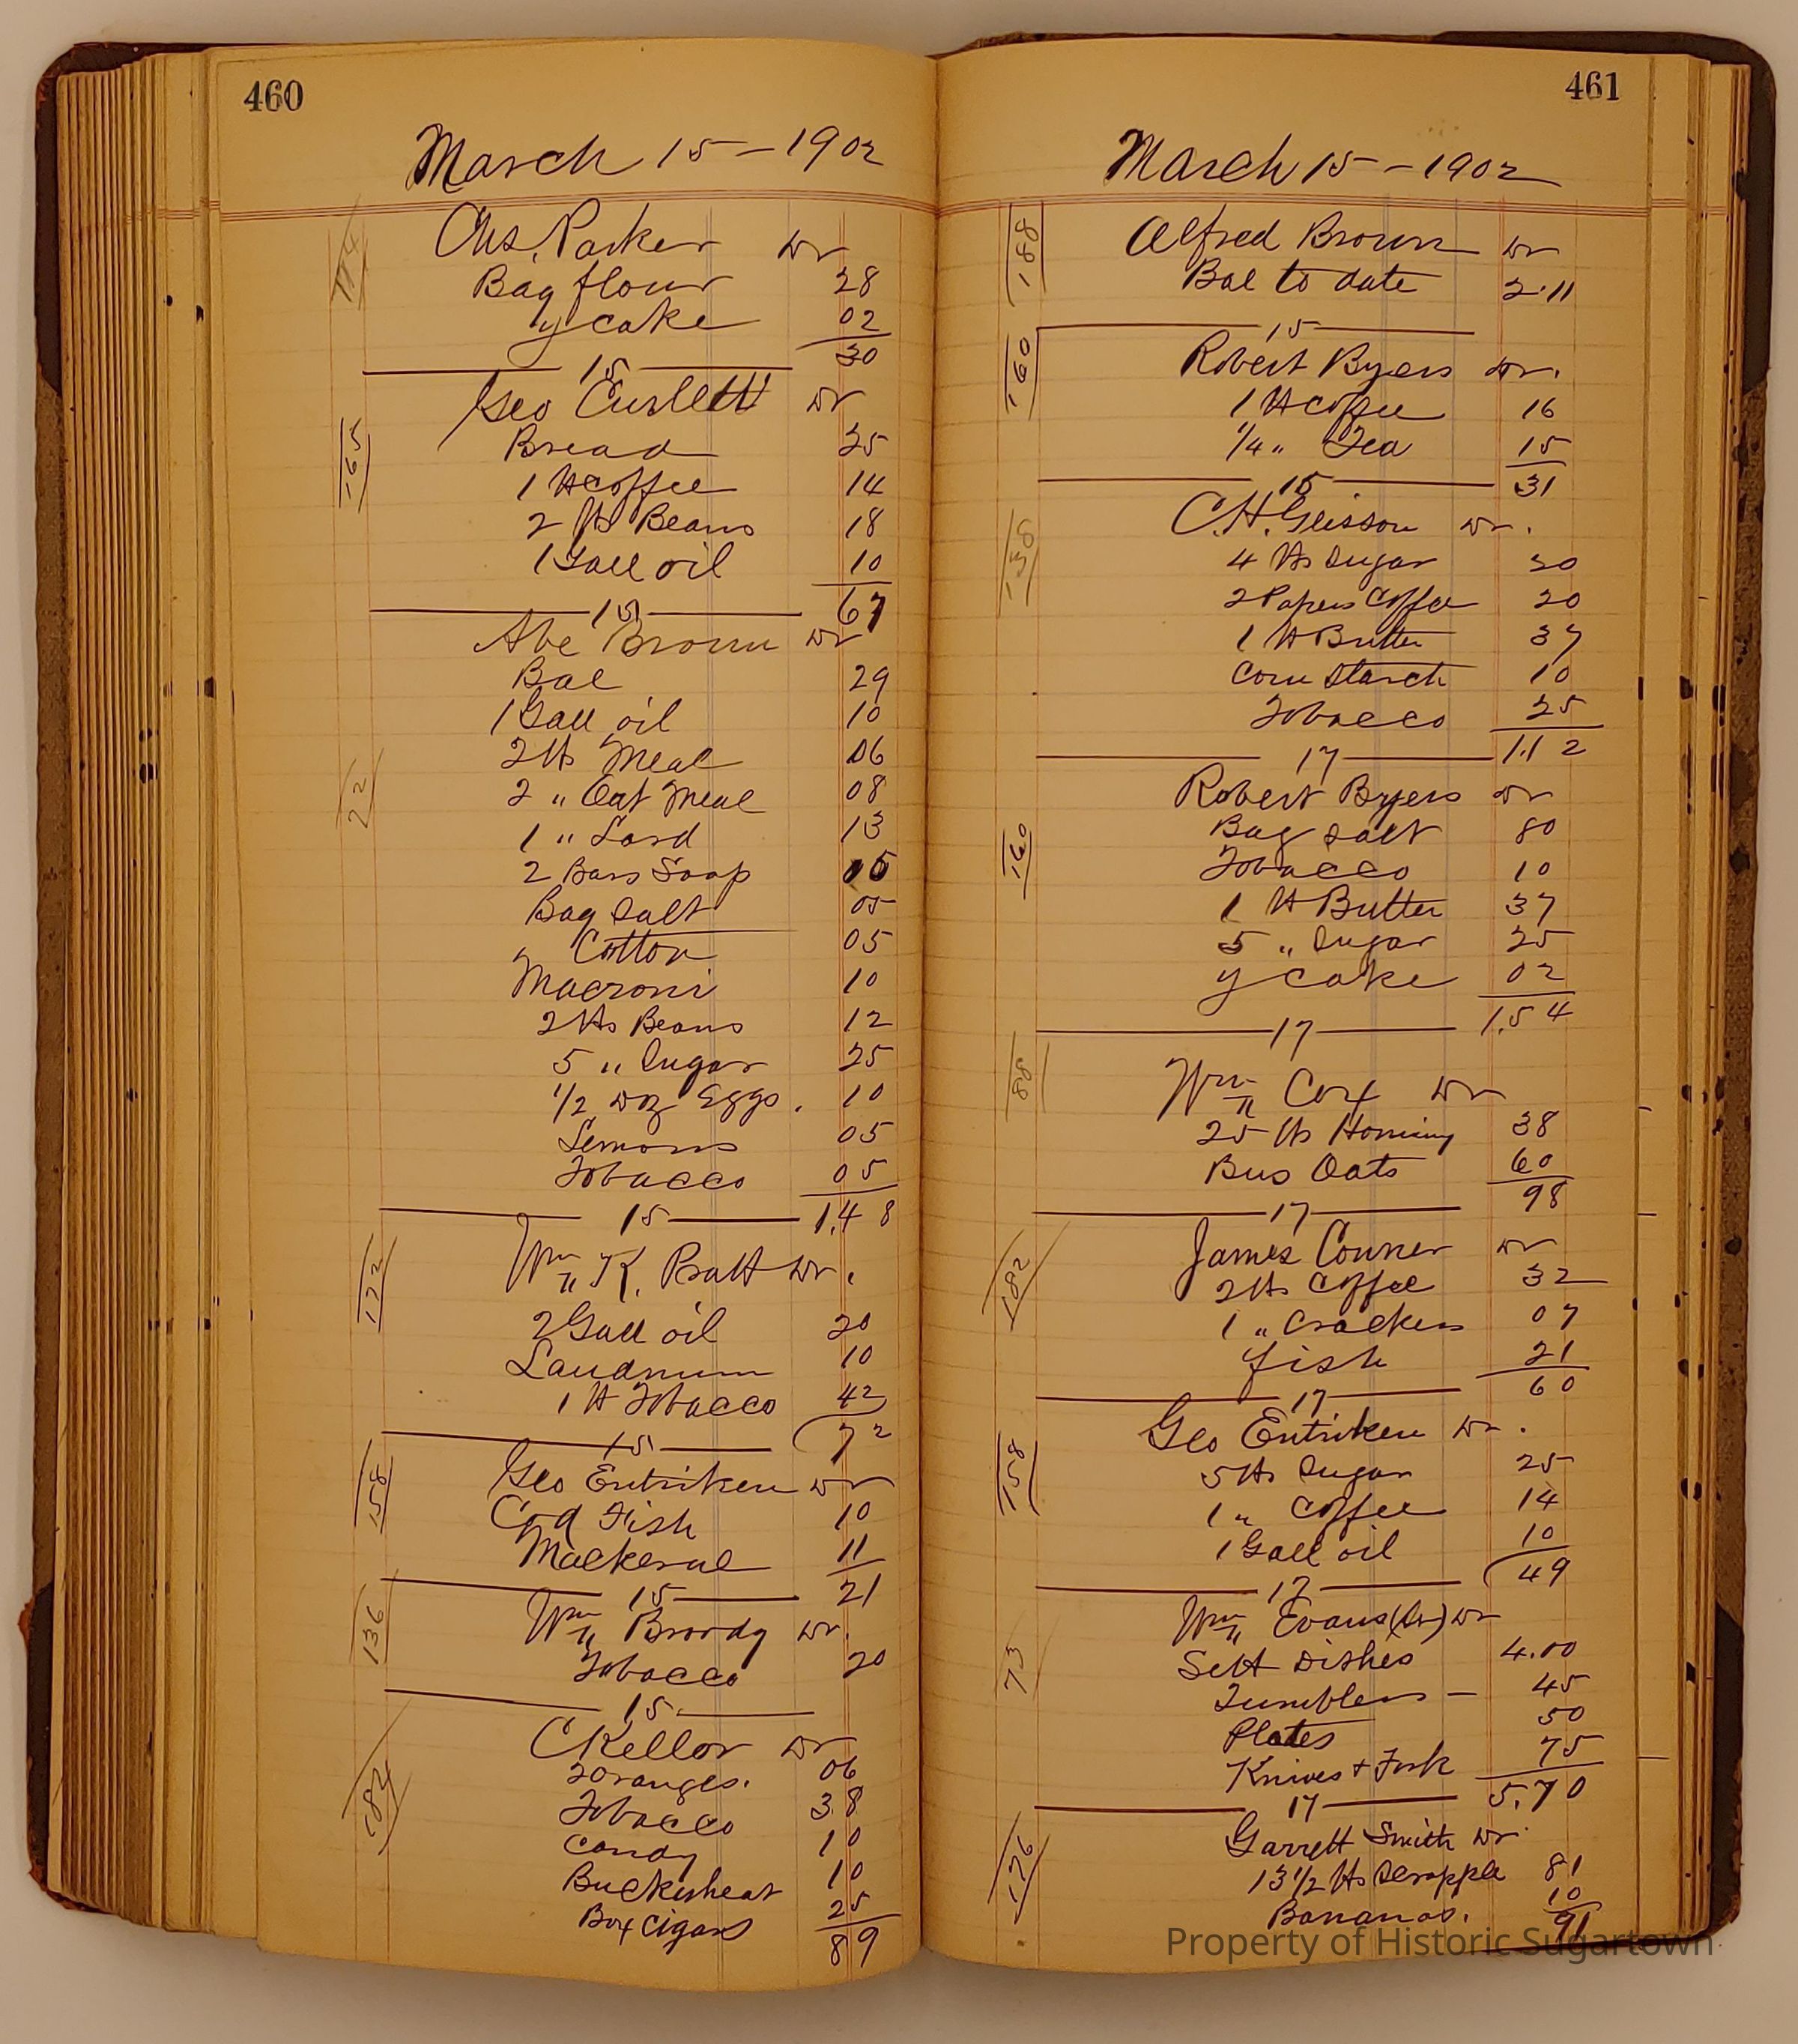 460
March 15 - 1902
114
Chs. Parker Dr
Bag flour 28
y cake 02
30
15
165
Geo Curlett Dr
Bread 25
1 lb coffee 14
2 lbs Beans 18
1 Gall oil 10
67
15
22
Abe Brown Dr
Bal 29
1 Gall oil 10
2 lbs Meal 06
2 " Oat Meal 08
1 " Lard 13
2 Bars Soap 05
Bag Salt 05
" Cotton 05
Macroni 10
2 lbs Beans 12
5 " Sugar 25
1/2 Doz Eggs. 10
Lemons 05
Tobacco 05
15 1.48
122
Wm K. Pratt Dr.
2 Gall oil 20
Laudnum 10
1 lb Tobacco 42
15 72
158
Geo Entriken Dr
Cod Fish 10
Mackeral 11
15 21
136
Wm Broody Dr.
Tobacco 20
15
182
C Kellor Dr
2 Oranges. 06
Tobacco 38
Candy 10
Buckwheat 10
Box Cigars 25
89
461
March 15 - 1902
188
Alfred Brown Dr
Bal to date 2.11
15
160
Robert Byers Dr.
1 lb coffee 16
1/4 " Tea 15
15 31
138
C.H. Geisson Dr.
4 lbs Sugar 20
2 Papers Coffee 20
1 lb Butter 37
Corn Starch 10
Tobacco 25
17 1.12
160
Robert Byers Dr
Bag Salt 80
Tobacco 10
1 lb Butter 37
5 " Sugar 25
y cake 02
17 1.54
88
Wm Cox Dr
25 lbs Hominy 38
Bus Oats 60
98
17
182
James Conner Dr
2 lbs Coffee 32
1 " Crackers 07
Fish 21
17 60
158
Geo Entriken Dr.
5 lbs Sugar 25
1 " Coffee 14
1 Gall oil 10
17 49
73
Wm Evans (Sr) Dr
Sett Dishes 4.00
Tumblers - 45
Plates 50
Knives + Fork 75
17 5.70
176
Garrett Smith Dr
13 1/2 lbs Scrapple 81
Bananas. 10
91
Property of Historic Sugartown